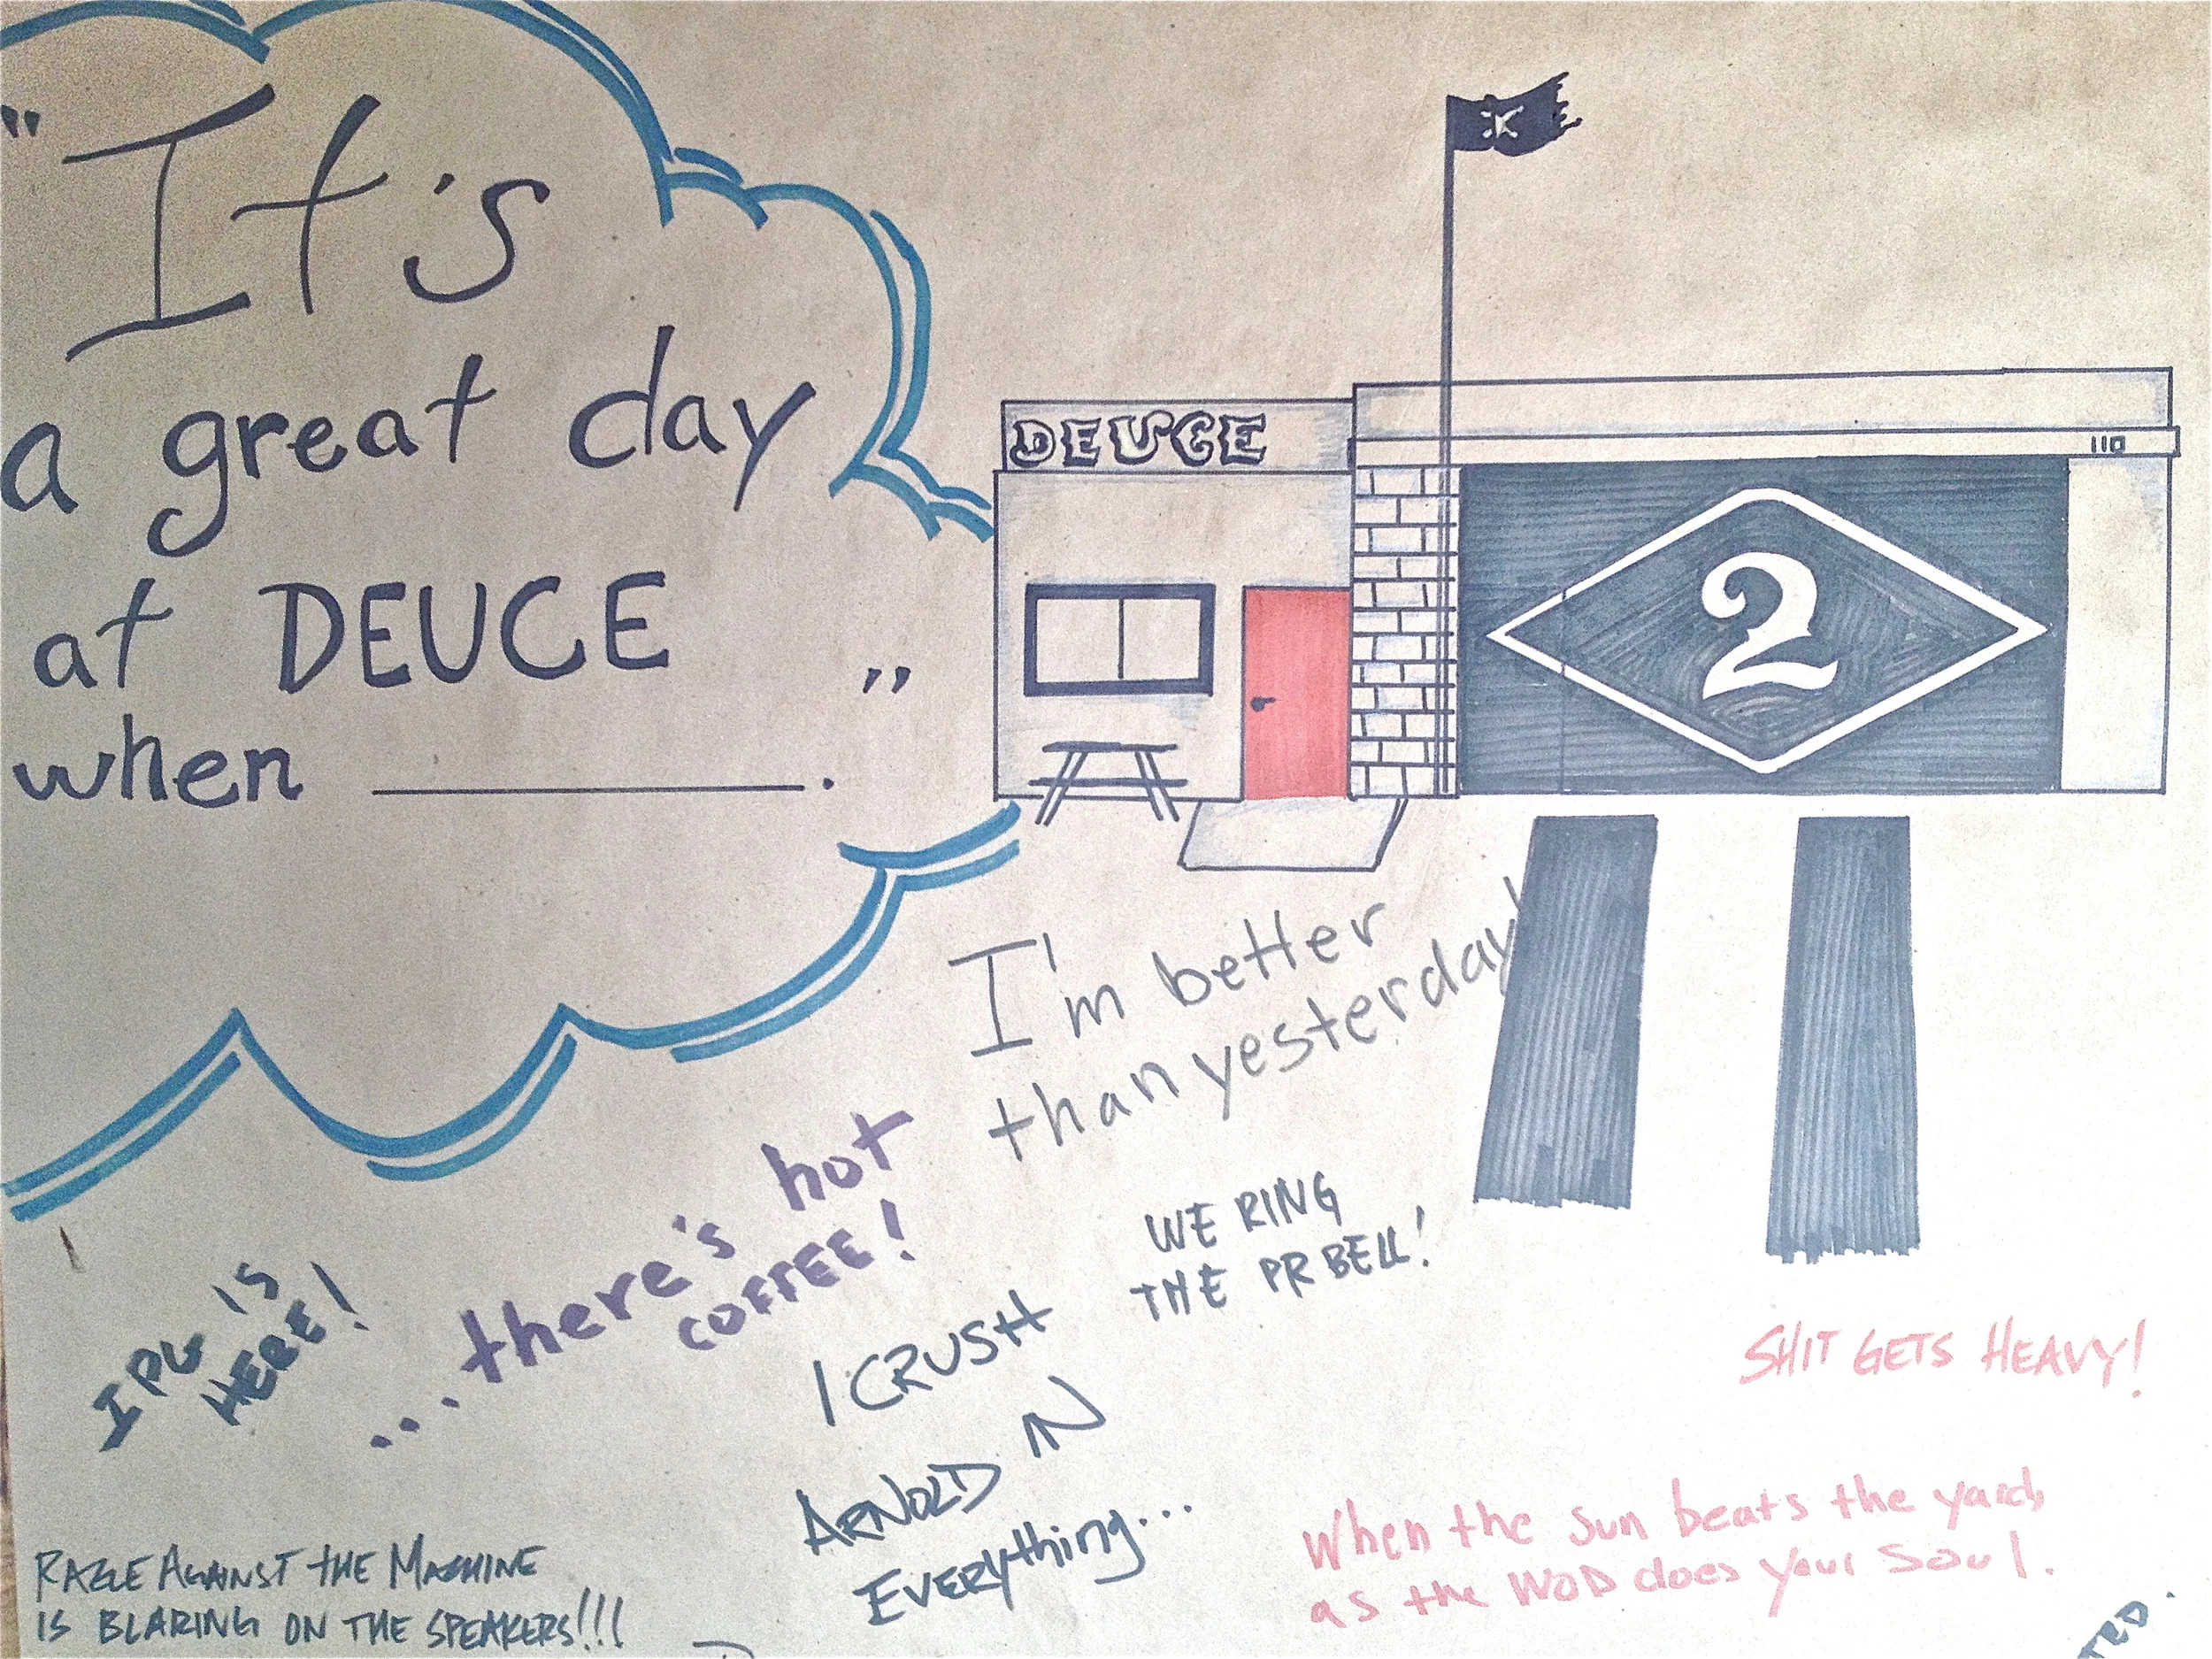 "It's
a great day
at DEUCE
when ________."
DEUCE
110
2
I'm better
than yesterday!
...there's hot
COFFEE!
WE RING
THE PR BELL!
I PU IS
HERE!
I CRUSH
ARNOLD IN
EVERYthing...
SHIT GETS HEAVY!
When the sun beats the yard,
as the WOD does your soul.
RAGE AGAINST THE MACHINE
IS BLARING ON THE SPEAKERS!!!